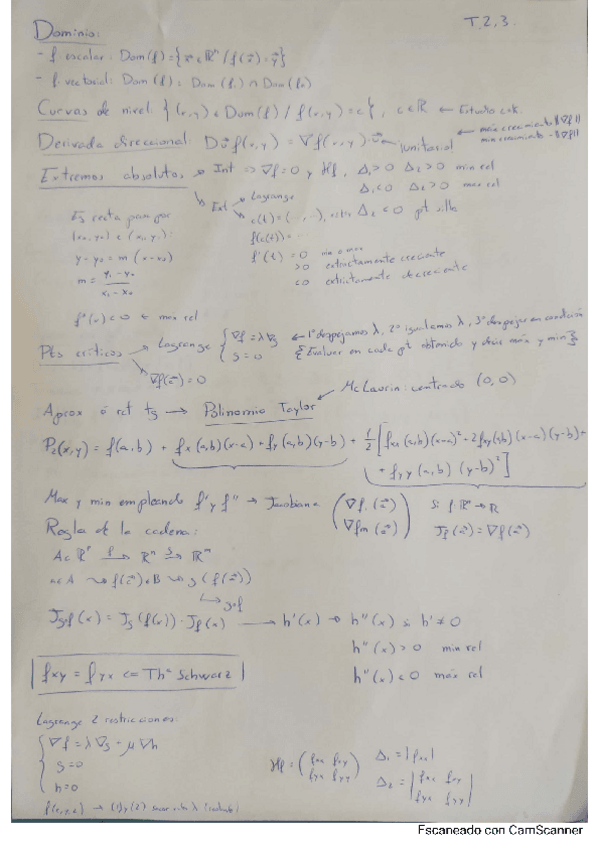 T.2,3.
Dominio:
- f. escalar: Dom(f) = {x⃗ ∈ ℝⁿ / f(x⃗) = y⃗}
- f. vectorial: Dom(f) = Dom(f₁) ∩ Dom(f₂)
Curvas de nivel: {(x,y) ∈ Dom(f) / f(x,y) = c}, c ∈ ℝ ←
Derivada direccional: D_u⃗ f(x,y) = ∇f(x,y) · u⃗ unitario ← max crecimiento ||∇f||
min crecimiento -||∇f||
Extremos absolutos → Int ⇒ ∇f = 0 y Hf, Δ₁ > 0 Δ₂ > 0 min rel
Δ₁ < 0 Δ₂ > 0 max rel
Ext → Lagrange
c(t) = (-, -), Δ₂ < 0 pt silla
f(c(t)) = -
f'(t) = 0 min o max
> 0 estrictamente creciente
< 0 estrictamente decreciente
Ec recta pasa por
(x₀, y₀) e (x₁, y₁):
y - y₀ = m (x - x₀)
m = (y₁ - y₀)/(x₁ - x₀)
f''(x) < 0 ← max rel
Pts críticos → Lagrange { ∇f = λ∇g ← 1º despejamos λ, 2º igualamos λ, 3º despejar en condición
g = 0 {Evaluar en cada pt obtenido y máx y min}
∇f(a⃗) = 0
Aprox ó ret tg → Polinomio Taylor ← McLaurin: centrado (0,0)
P₂(x,y) = f(a,b) + fx(a,b)(x-a) + fy(a,b)(y-b) + 1/2 [fxx(a,b)(x-a)² + 2fxy(a,b)(x-a)(y-b) +
+ fyy(a,b)(y-b)²]
Max y min empleando f' y f'' → Jacobiana (∇f₁(a⃗) Si f: ℝⁿ → ℝ
∇fm(a⃗)) Jf(a⃗) = ∇f(a⃗)
Regla de la cadena:
A ⊂ ℝᵖ →f ℝⁿ →g ℝᵐ
a ∈ A ⇝ f(a⃗) ∈ B ⇝ g(f(a⃗))
↳ g∘f
Jg∘f(x) = Jg(f(x)) · Jf(x) → h'(x) → h''(x) si h' ≠ 0
h''(x) > 0 min rel
h''(x) < 0 máx rel
| fxy = fyx ⇐ Thª Schwarz |
Lagrange 2 restricciones:
{ ∇f = λ∇g + μ∇h
g = 0
h = 0
Hf = (fxx fxy
fyx fyy)
Δ₁ = |fxx|
Δ₂ = |fxx fxy
fyx fyy|
f(x,y,z) → (1) y (2)
Escaneado con CamScanner